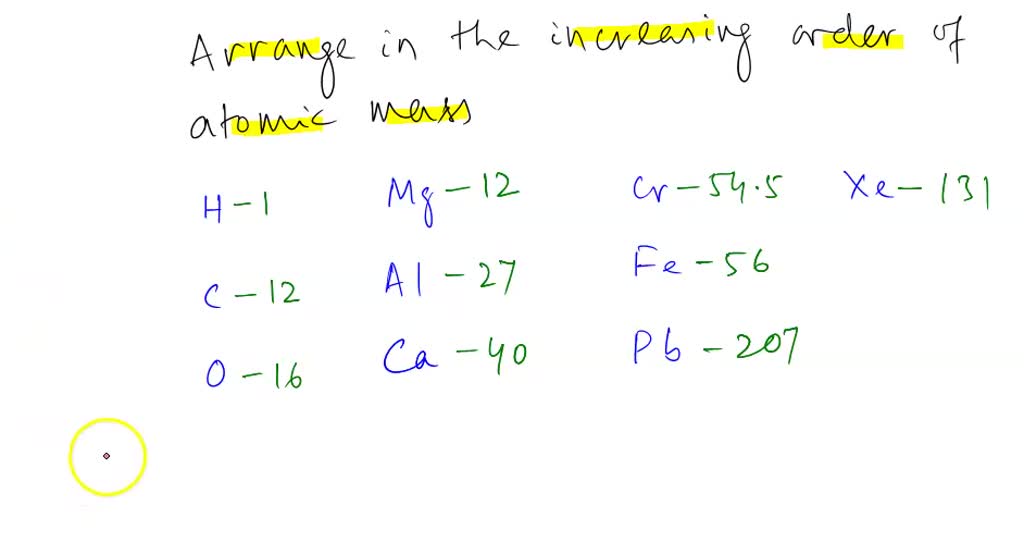 Arrange in the increasing order of
atomic mass
H - 1 Mg - 12 Cr - 54.5 Xe - 131
C - 12 Al - 27 Fe - 56
O - 16 Ca - 40 Pb - 207